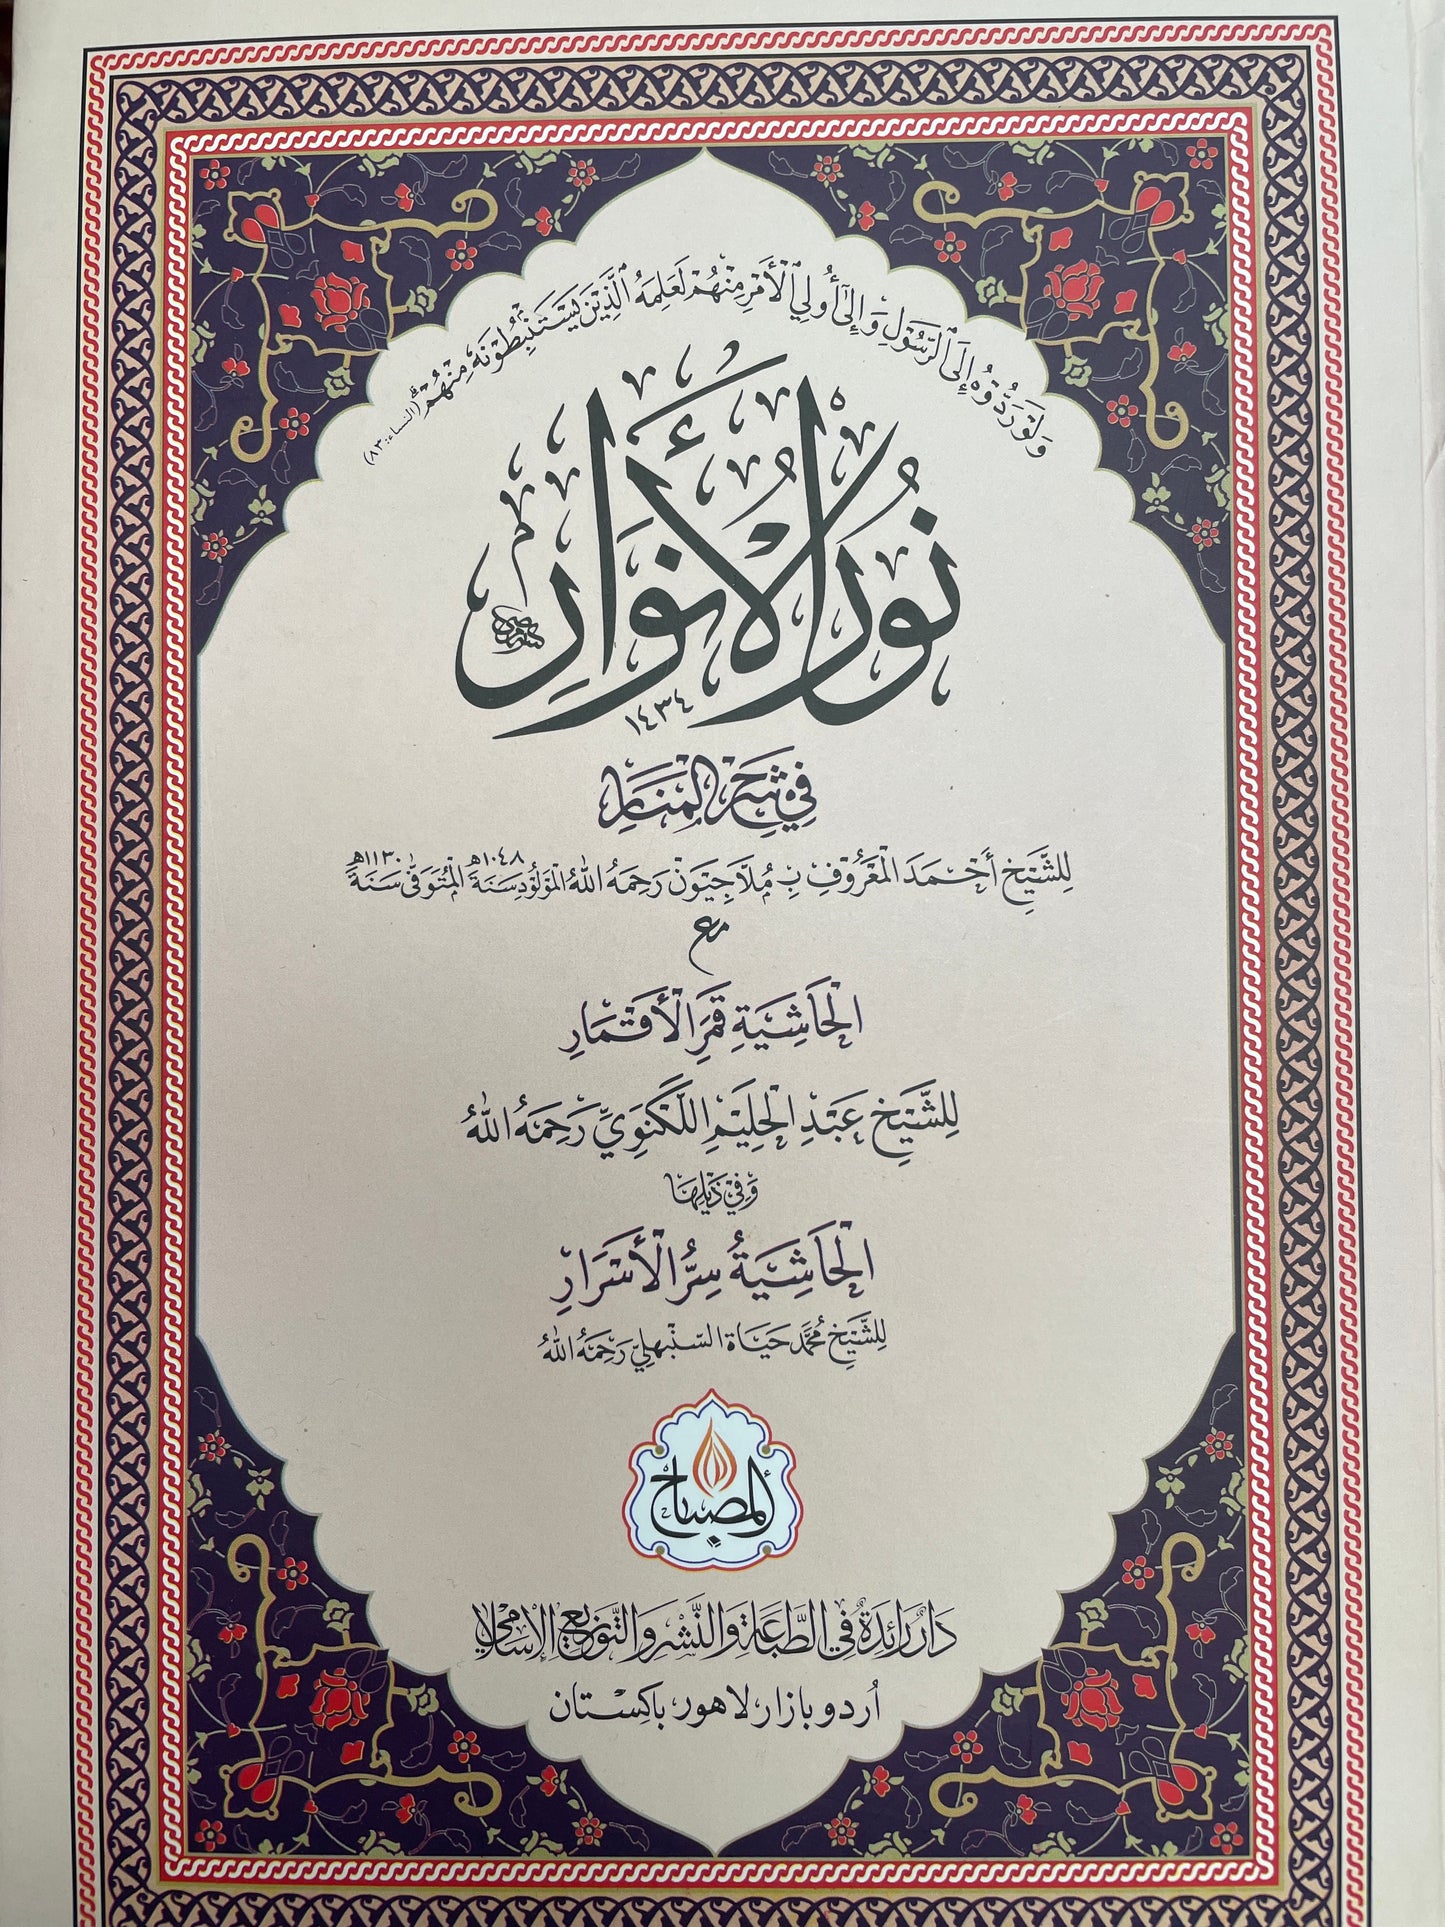 وَلَوْ رَدُّوْهُ إِلَى الرَّسُوْلِ وَإِلَىٰٓ أُولِي الْأَمْرِ مِنْهُمْ لَعَلِمَهُ الَّذِيْنَ يَسْتَنْۢبِطُوْنَهٗ مِنْهُمْ ؕ (النساء: ٨٣)
نُوْرُ الْأَنْوَارِ
١٤٣٤
فِيْ شَرْحِ الْمَنَارِ
لِلشَّيْخِ أَحْمَدَ الْمَعْرُوْفِ بِ مُلَّا جِيْوَنْ رَحِمَهُ اللّٰهُ الْمَوْلُوْدِ سَنَةَ ١٠٤٨ھ الْمُتَوَفّٰى سَنَةَ ١١٣٠ھ
مع
الْحَاشِيَةِ قَمَرِ الْأَقْمَارِ
لِلشَّيْخِ عَبْدِ الْحَلِيْمِ اللَّكْنَوِيِّ رَحِمَهُ اللّٰهُ
وَفِيْ ذَيْلِهَا
الْحَاشِيَةُ سِرُّ الْأَسْرَارِ
لِلشَّيْخِ مُحَمَّد حَيَاة السَّنْبَهلِيّ رَحِمَهُ اللّٰهُ
المصباح
دَارٌ رَائِدَةٌ فِي الطِّبَاعَةِ وَالنَّشْرِ وَالتَّوْزِيْعِ الْإِسْلَامِيِّ
اُردو بازار، لاهور، باكستان